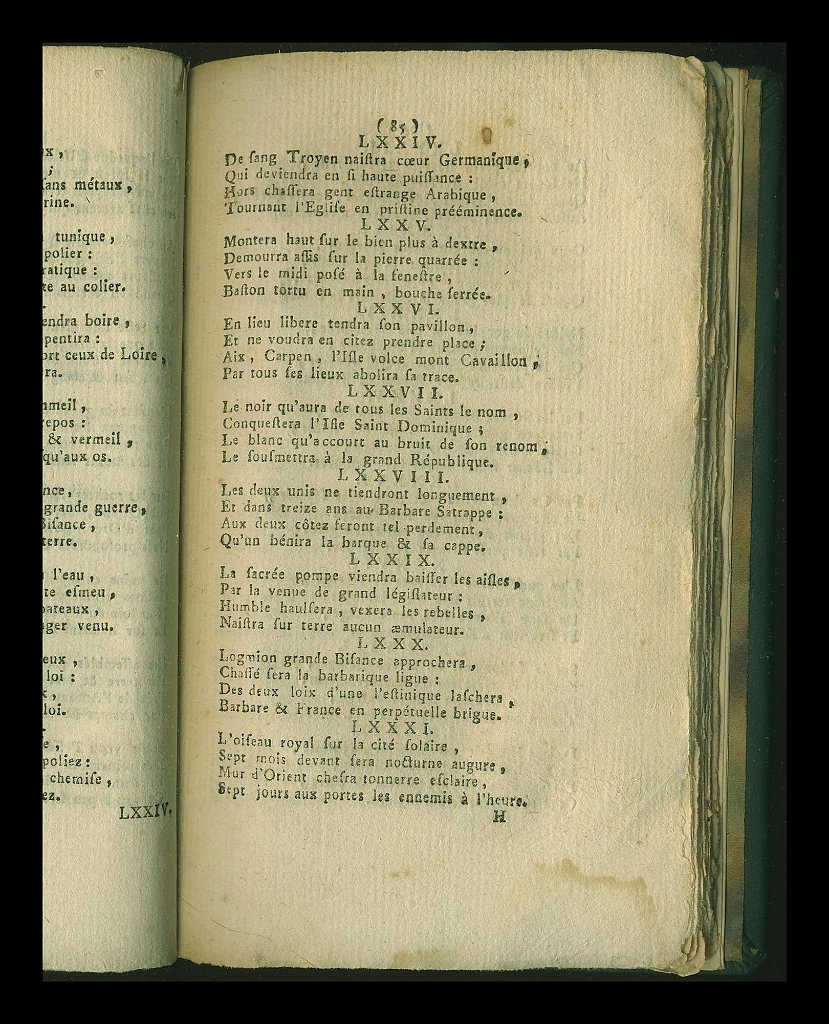 x,
;
sans métaux,
rine.
tunique,
polier :
ratique :
te au colier.
endra boire,
pentira :
ort ceux de Loire,
ra.
meil,
repos :
& vermeil,
qu'aux os.
nce,
grande guerre,
Bisance,
terre.
l'eau,
te esmeu,
bateaux,
ger venu.
eux,
loi :
x,
loi.
e,
poliez :
chemise,
ez.
LXXIV.
( 85 )
LXXIV.
De sang Troyen naistra cœur Germanique,
Qui deviendra en si haute puissance :
Hors chassera gent estrange Arabique,
Tournant l'Eglise en pristine prééminence.
LXXV.
Montera haut sur le bien plus à dextre,
Demourra assis sur la pierre quarrée :
Vers le midi posé à la fenestre,
Baston tortu en main, bouche serrée.
LXXVI.
En lieu libere tendra son pavillon,
Et ne voudra en citez prendre place ;
Aix, Carpen, l'Isle volce mont Cavaillon,
Par tous ses lieux abolira sa trace.
LXXVII.
Le noir qu'aura de tous les Saints le nom,
Conquestera l'Isle Saint Dominique ;
Le blanc qu'accourt au bruit de son renom,
Le sousmettra à la grand République.
LXXVIII.
Les deux unis ne tiendront longuement,
Et dans treize ans au Barbare Satrappe :
Aux deux côtez feront tel perdement,
Qu'un bénira la barque & sa cappe.
LXXIX.
La sacrée pompe viendra baisser les aisles,
Par la venue de grand législateur :
Humble haulsera, vexera les rebelles,
Naistra sur terre aucun æmulateur.
LXXX.
Logmion grande Bisance approchera,
Chassé sera la barbarique ligue :
Des deux loix d'une l'estinique laschera,
Barbare & France en perpétuelle brigue.
LXXXI.
L'oiseau royal sur la cité solaire,
Sept mois devant sera nocturne augure,
Mur d'Orient chesra tonnerre esclaire,
Sept jours aux portes les ennemis à l'heure.
H